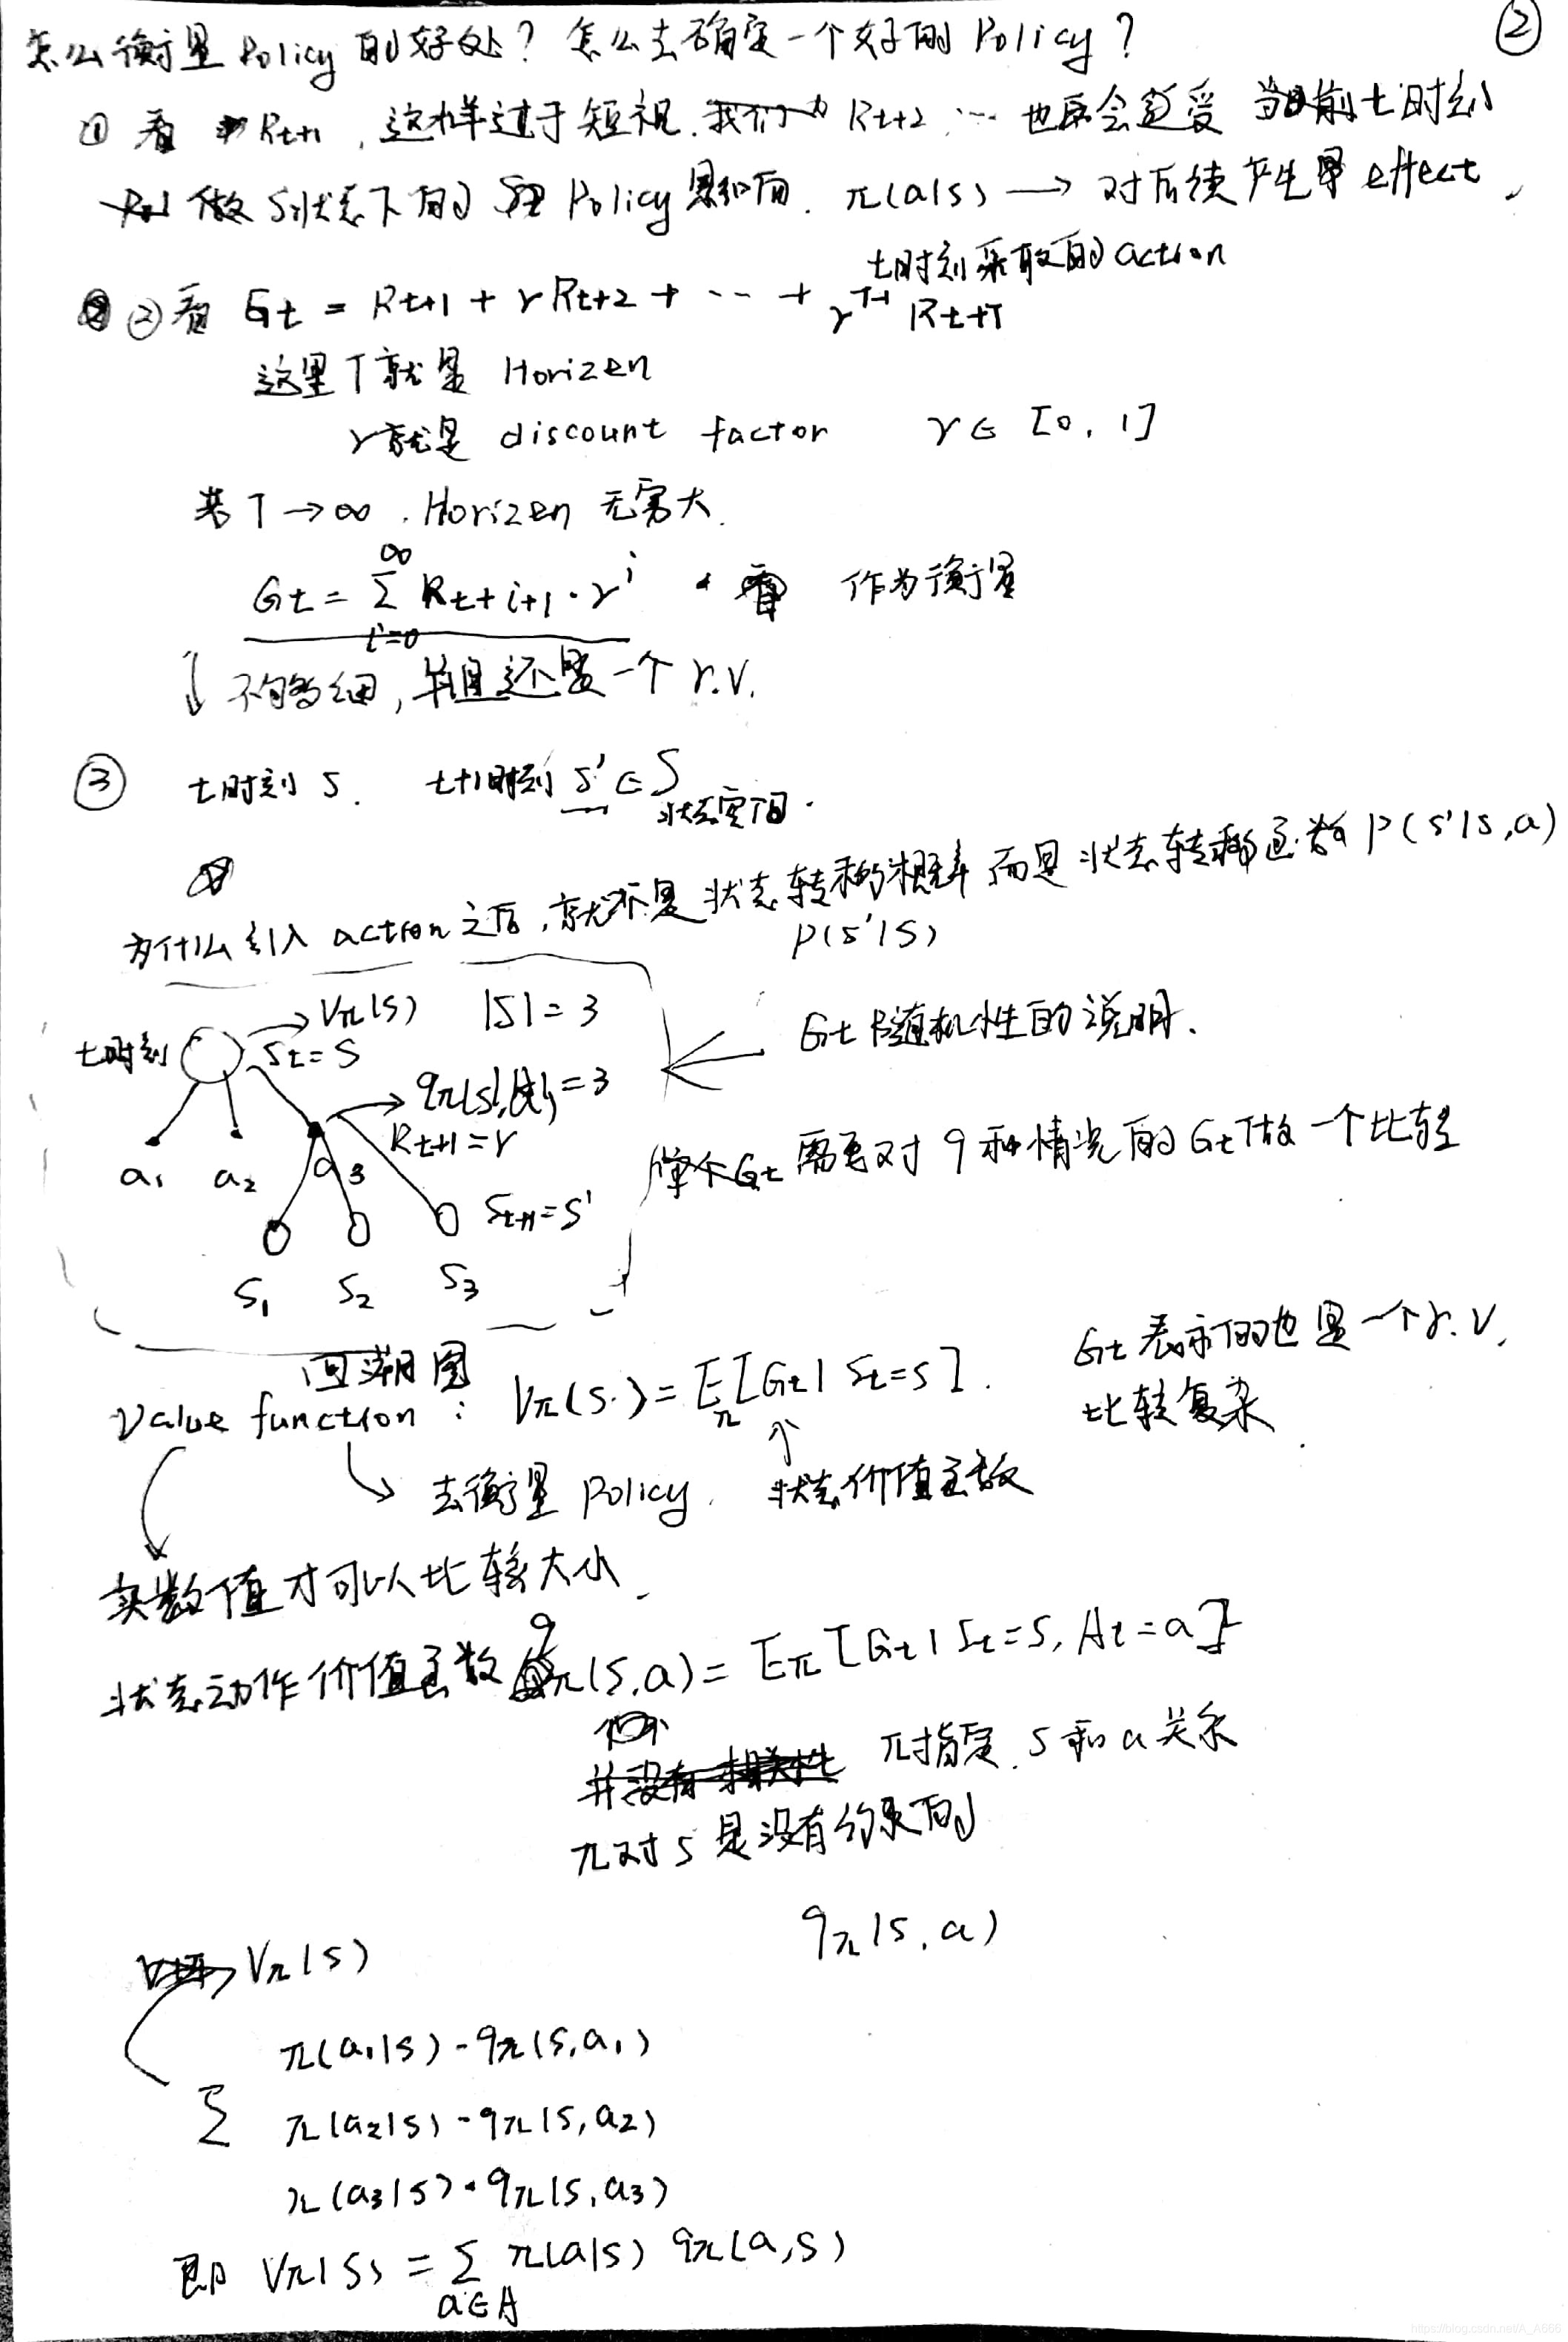 ②
怎么衡量 Policy 的好处？怎么去确定一个好的 Policy？
① 看 Rt+1，这样过于短视. Rt+2 … 也会受 当前 t 时刻
做 S状态下的 Policy 影响. π(a|s) → 对后续产生 effect,
t时刻采取的 action
② 看 Gt = Rt+1 + γRt+2 + … + γ^T-1 Rt+T
这里T就是 Horizen
γ就是 discount factor γ∈ [0, 1]
若 T→∞ . Horizen 无穷大.
Gt = ∑ i=0 ∞ Rt+i+1 · γ^i 作为衡量
↓ 不够细, 并且还是一个 r.v.
③ t时刻 s. t+1时刻 s' ∈ S
状态空间.
为什么引入 action 之后, 就不是状态转移的概率 而是状态转移函数 P(s'|s,a)
P(s'|s)
→ Vπ(s) |S| = 3
t时刻 St = S
← Gt 随机性的说明.
→ qπ(s, |A| = 3
Rt+1 = r
a1 a2 a3
需要对 9 种情况的 Gt 做一个比较
St+1 = s'
S1 S2 S3
回溯图
Gt 表示的也是一个 r.v.
比较复杂.
Value function : Vπ(s.) = Eπ[Gt| St=s].
↑
去衡量 Policy. 状态价值函数
实数值才可以比较大小.
状态动作价值函数 qπ(s,a) = Eπ[Gt| St=s, At=a]
π指定. s 和 a 关系
π对 s 是没有约束的
qπ(s,a)
Vπ(s)
π(a1|s) · qπ(s,a1)
∑ π(a2|s) · qπ(s,a2)
π(a3|s) · qπ(s,a3)
即 Vπ(s) = ∑ a∈A π(a|s) qπ(a,s)
https://blog.csdn.net/A_A666